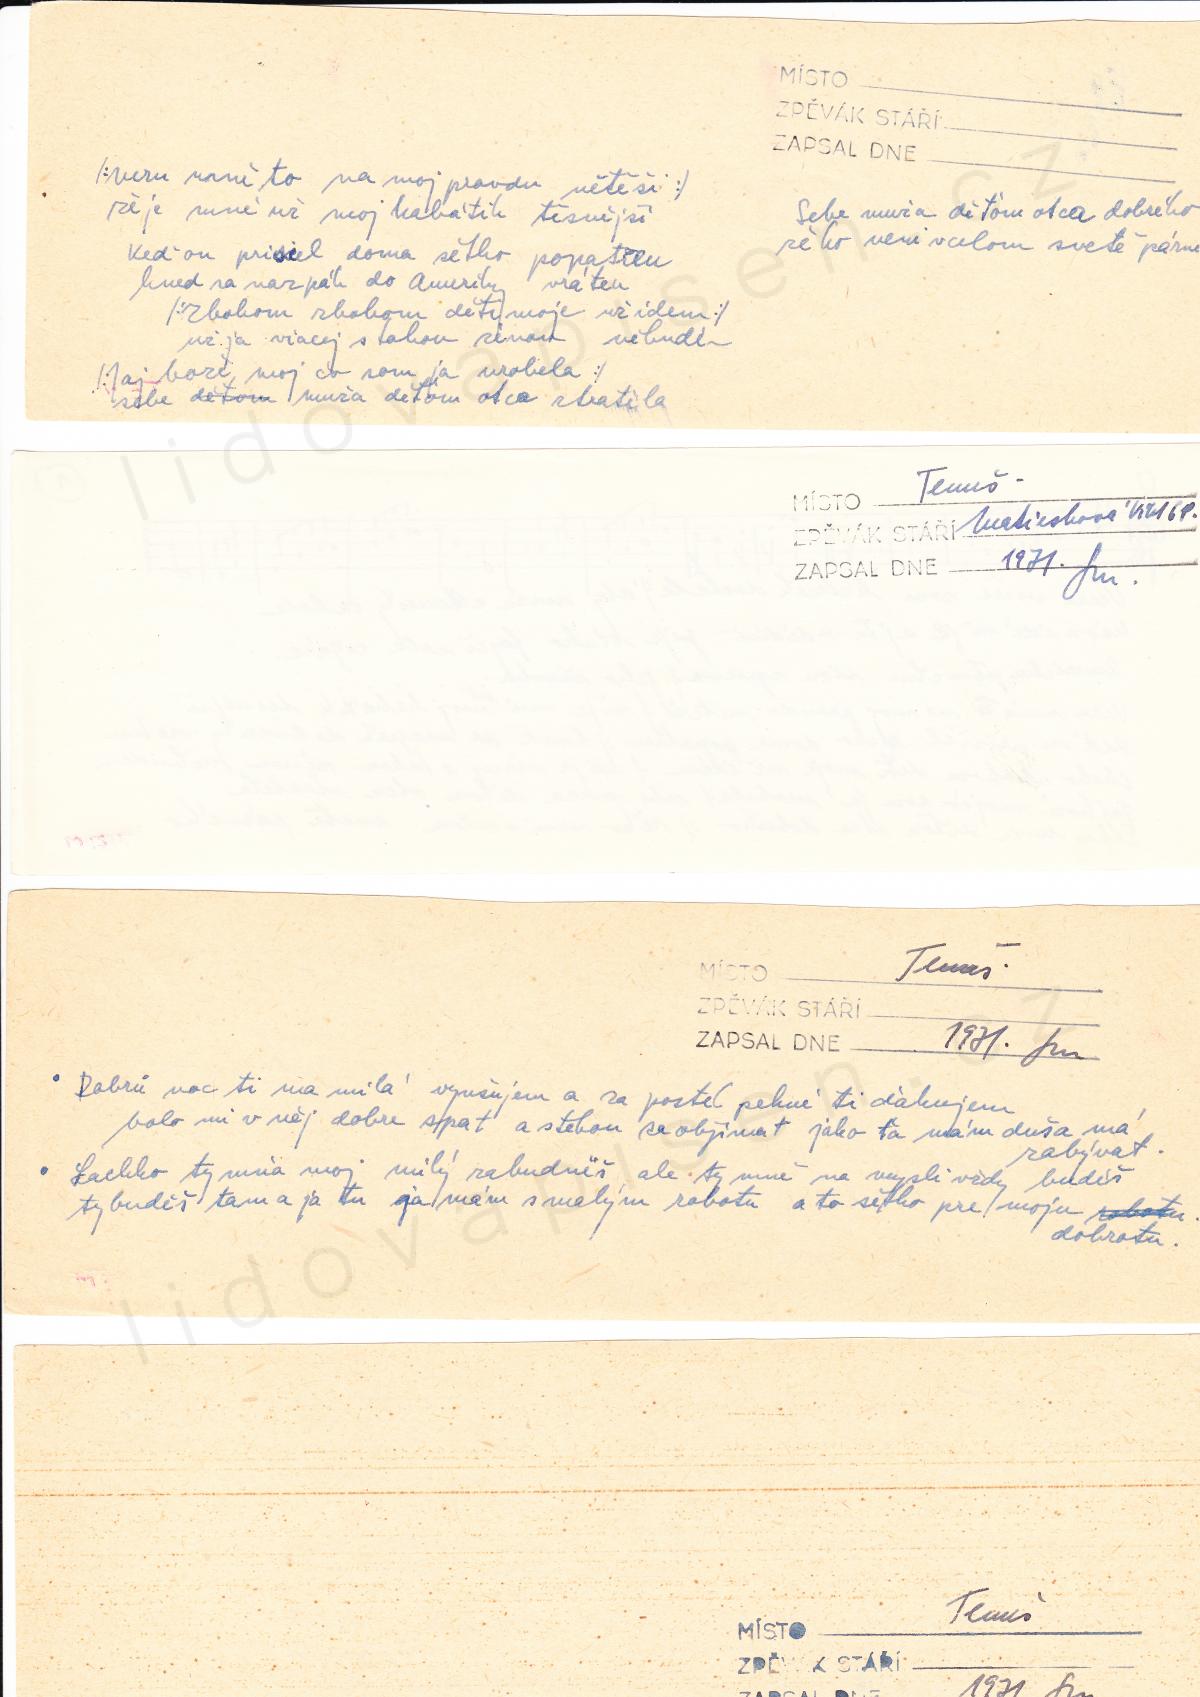 MÍSTO
ZPĚVÁK STÁŘÍ
ZAPSAL DNE
/:veru mně to na moj pravdu nětěší:/
že je mně už moj kabátik těsnější
Keď on prišiel doma sětko popatrěu
hned sa nazpák do Ameriky vrátěu
/:Zbohom zbohom děti moje už idem:/
už ja viacej s tobou ženou něbudě
/:jaj bože moj čo som ja urobela:/
sebe dětom muža dětom otca ztratila
Sebe muža dětom otca dobrého
rého neni vcelom svetě párne
MÍSTO Temeš-
ZPĚVÁK STÁŘÍ
ZAPSAL DNE 1971.
MÍSTO Temeš.
ZPĚVÁK STÁŘÍ
ZAPSAL DNE 1971.
• Dobrú noc ti ma milá vynšujem a za postel pekně ti ďákujem
bolo mi v něj dobre spat a stebou sa objímat jako ťa mám duša má
zabývat.
• Lachko ty mňa moj milý zabudněš ale ty mně na mysli vždy buděš
ty buděš tam a ja tu ja mám s malým robotu a to sětko pre moju robotu.
dobrotu.
MÍSTO Temeš
ZPĚVÁK STÁŘÍ
ZAPSAL DNE 1971
lidovapisen.cz
lidovapisen.cz